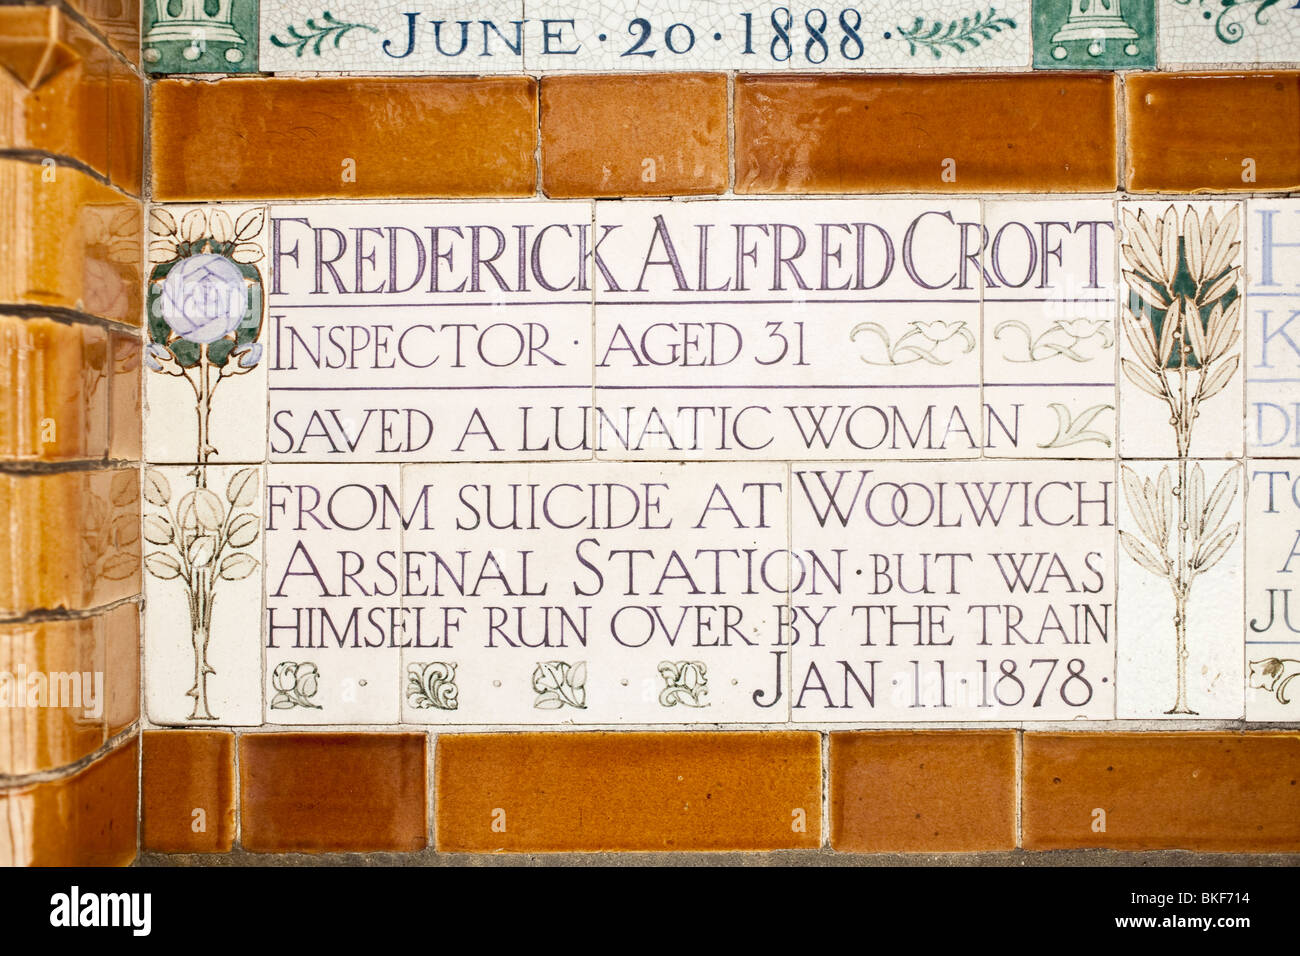 JUNE · 20 · 1888 ·
FREDERICK ALFRED CROFT
INSPECTOR · AGED 31
SAVED A LUNATIC WOMAN
FROM SUICIDE AT WOOLWICH
ARSENAL STATION · BUT WAS
HIMSELF RUN OVER BY THE TRAIN
JAN · 11 · 1878 ·
H
K
DE
TO
A
JU
a
a
a
a
a
a
a
a
a
alamy
Image ID: BKF714
www.alamy.com